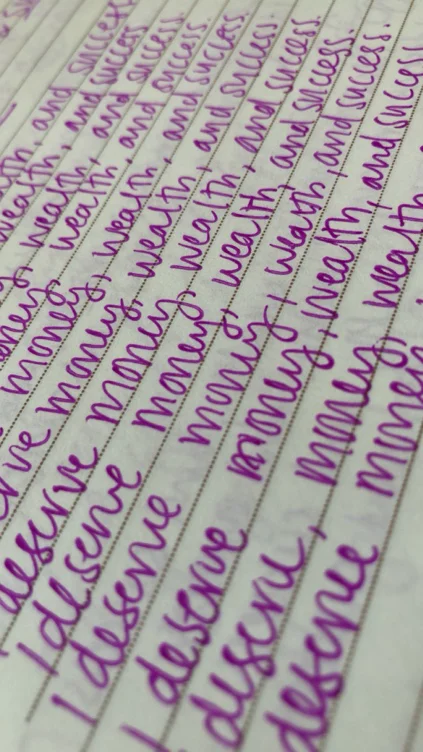 and success
wealth, and success
money, wealth, and success.
money, wealth, and success.
money, wealth, and success.
deserve money, wealth, and success.
I deserve money, wealth, and success.
I deserve money, wealth, and success.
I deserve money, wealth, and success.
deserve, money, wealth, and success
deserve money, wealth